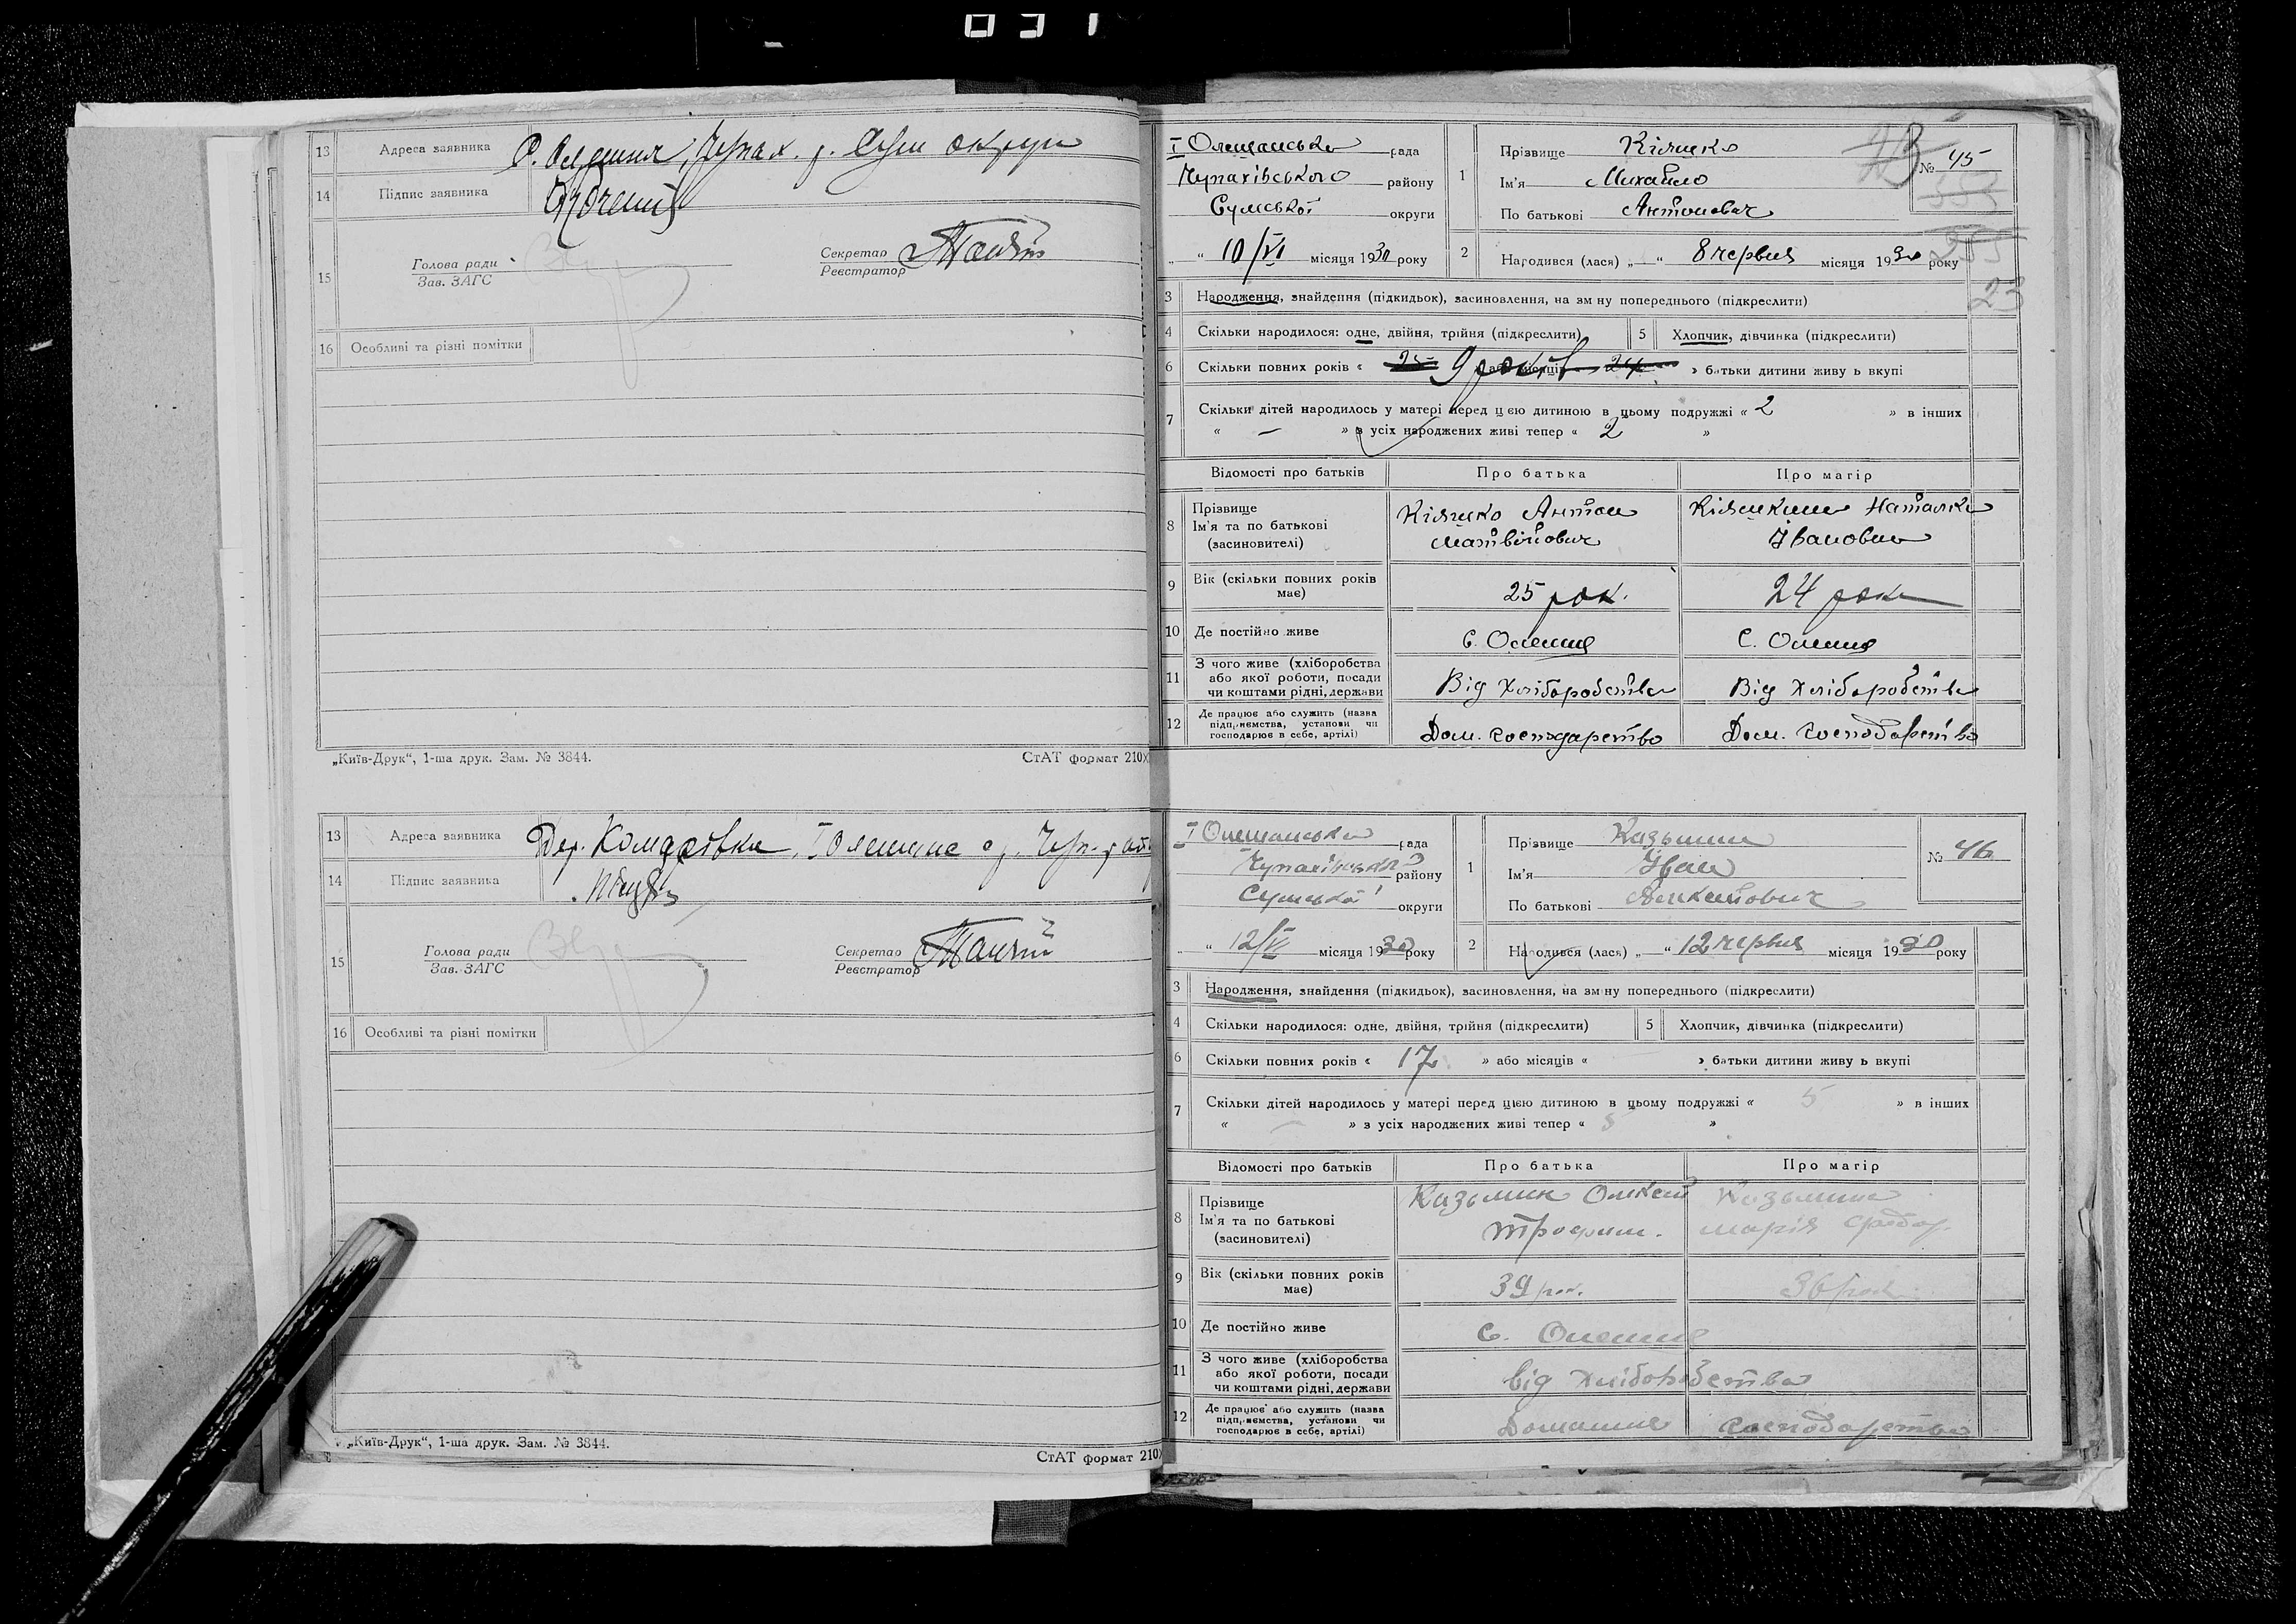 031
13 Адреса заявника С. Олешня, Чупах. р. Сум округи
14 Підпис заявника
15 Голова ради
Зав. ЗАГС
Секретар
Реєстратор
16 Особливі та різні помітки
„Київ-Друк“, 1-ша друк. Зам. № 3844.
СтАТ формат 210
13 Адреса заявника Дер. І Олешнянс Чуп.
14 Підпис заявника
15 Голова ради
Зав. ЗАГС
Секретар
Реєстратор
16 Особливі та різні помітки
„Київ-Друк“, 1-ша друк. Зам. № 3844.
СтАТ формат 210
І Олешанська рада
Чупахівського району
Сумської округи
„ “ 10/VI місяця 1930 року
1 Прізвище
Ім'я Михайло
По батькові Антонович
№ 45
2 Народився (лася) „—“ 8 червня місяця 1930 року
23
3 Народження, знайдення (підкидьок), засиновлення, на зміну попереднього (підкреслити)
4 Скільки народилося: одне, двійня, трійня (підкреслити)
5 Хлопчик, дівчинка (підкреслити)
6 Скільки повних років « 25 9 років або місяців 24 » батьки дитини живуть вкупі
7 Скільки дітей народилось у матері перед цією дитиною в цьому подружжі « 2 » в інших
« — » з усіх народжених живі тепер « 2 »
Відомості про батьків Про батька Про матір
8 Прізвище
Ім'я та по батькові
(засиновителі)
Антон
Матвійович
Наталка
Івановна
9 Вік (скільки повних років має) 25 рок. 24 рок
10 Де постійно живе С. Олешня С. Олешня
11 З чого живе (хліборобства
або якої роботи, посади
чи коштами рідні, держави
Від хліборобства Від хліборобства
12 Де працює або служить (назва
підприємства, установи чи
господарює в себе, артілі)
Дом. господарство Дом. господарство
І Олешанська рада
Чупахівського району
Сумської округи
„ “ 12/VI місяця 1930 року
1 Прізвище Казьмин
Ім'я Іван
По батькові
№ 46
2 Народився (лася) „—“ 12 червня місяця 1930 року
3 Народження, знайдення (підкидьок), засиновлення, на зміну попереднього (підкреслити)
4 Скільки народилося: одне, двійня, трійня (підкреслити)
5 Хлопчик, дівчинка (підкреслити)
6 Скільки повних років « 17 » або місяців « » батьки дитини живуть вкупі
7 Скільки дітей народилось у матері перед цією дитиною в цьому подружжі « 5 » в інших
« — » з усіх народжених живі тепер « 5 »
Відомості про батьків Про батька Про матір
8 Прізвище
Ім'я та по батькові
(засиновителі)
Казьмин Олексій
Трофим.
Казьмина
Марія
9 Вік (скільки повних років має) 39 рок. 36 рок
10 Де постійно живе С. Олешня
11 З чого живе (хліборобства
або якої роботи, посади
чи коштами рідні, держави
від хліборобства
12 Де працює або служить (назва
підприємства, установи чи
господарює в себе, артілі)
Домашнє господарство